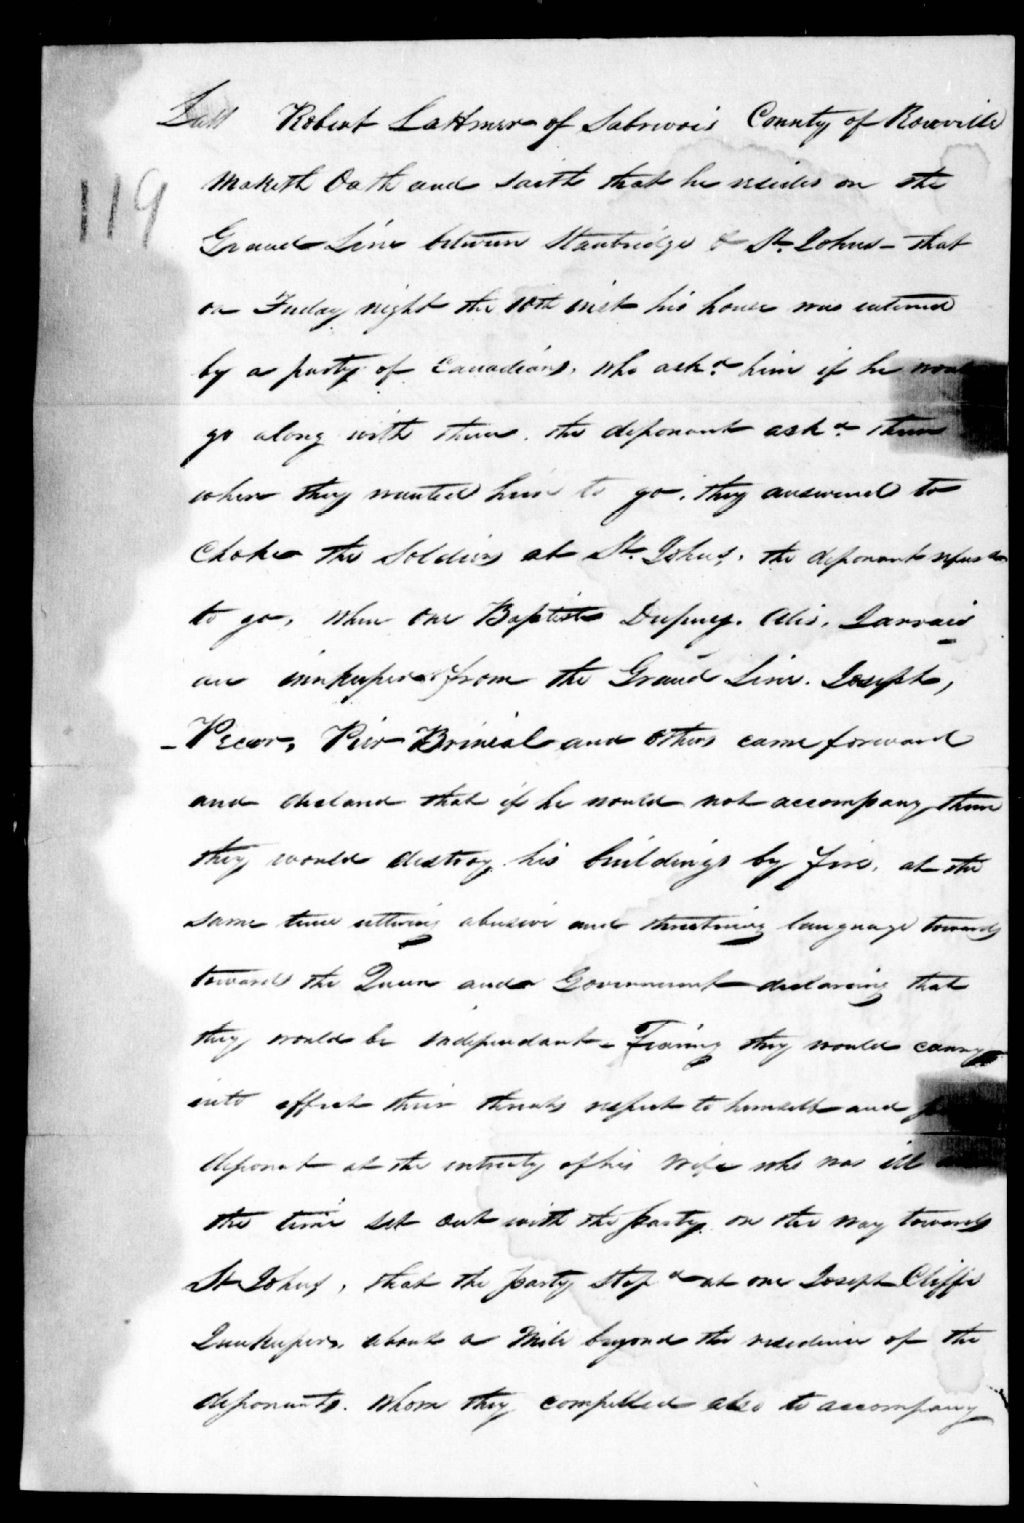 Robert Lattmer of Sabrevois County of Rouville
119
Maketh Oath and saith that he resides on the
Grand Line between Stanbridge & St. Johns - that
on Friday night the 10th inst his house was entered
by a party of Canadians, who askd him if he would
go along with them, the deponant askd them
where they wanted him to go, they answered to
Choke the Soldiers at St. Johns, the deponant refused
to go, when one Baptiste Dupuey, Jarvais
an innkeeper from the Grand Line. Joseph,
- Pecor, Pier Brinial and others came forward
and declared that if he would not accompany them
they would destroy his buildings by fire, at the
same time uttering abusive and thretning language towards
towards the Queen and Government declaring that
they would be independant - Fearing they would carry
into effect their threats respect to himself and
deponat at the entreaty of his Wife who was ill
the time set out with the party on the way towards
St Johns, that the party stopd at one Joseph Cliffe
Innkeepers, about a Mile beyond the residence of the
deponants. whom they compelled also to accompany